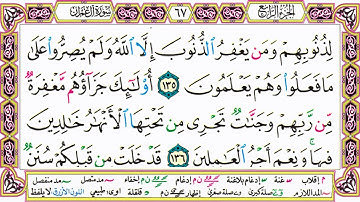 الجزء الرابع ٦٧ سورة آل عمران
لِذُنُوبِهِمْ وَمَن يَغْفِرُ الذُّنُوبَ إِلَّا اللَّهُ وَلَمْ يُصِرُّوا عَلَىٰ
مَا فَعَلُوا وَهُمْ يَعْلَمُونَ ١٣٥ أُولَٰئِكَ جَزَاؤُهُم مَّغْفِرَةٌ
مِّن رَّبِّهِمْ وَجَنَّاتٌ تَجْرِي مِن تَحْتِهَا الْأَنْهَارُ خَالِدِينَ
فِيهَا وَنِعْمَ أَجْرُ الْعَامِلِينَ ١٣٦ قَدْ خَلَتْ مِن قَبْلِكُمْ سُنَنٌ